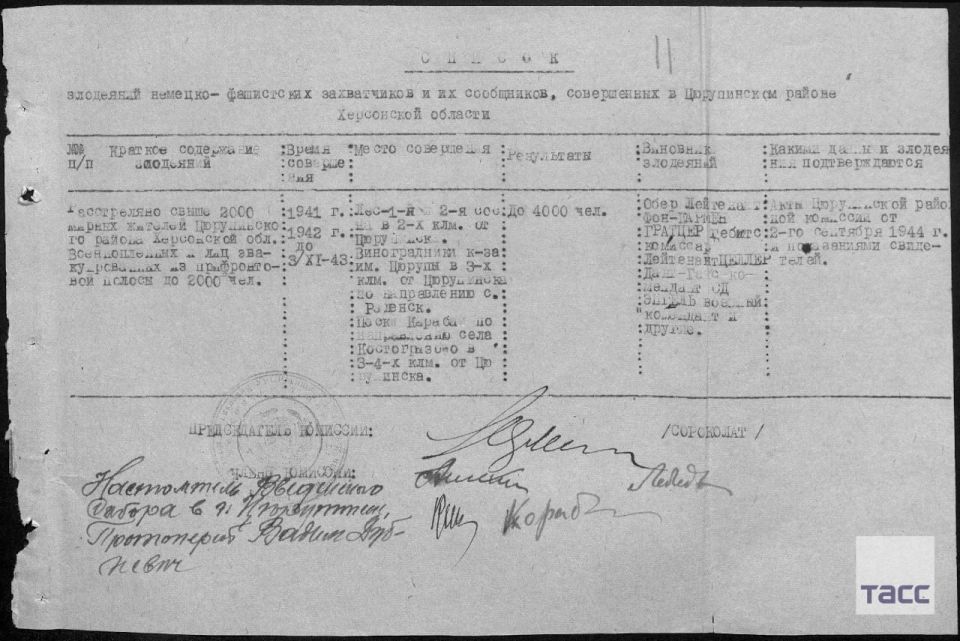 11
СПИСОК
злодеяний немецко-фашистских захватчиков и их сообщников, совершенных в Цюрупинском районе
Херсонской области
№№ п/п
Краткое содержание
злодеяний
Время
соверше
ния
Место совершения
Результаты
Виновники
злодеяний
Какими данны и злодея
ния подтверждаются
Расстреляно свыше 2000
мирных жителей Цюрупинско
го района Херсонской обл.
Военнопленных и лиц эва-
куированных из прифронто-
вой полосы до 2000 чел.
1941 г.
1942 г.
до
3/XI-43.
Лес-1-я и 2-я сос
на в 2-х клм. от
Цюрупинска.
Виноградники к-за
им. Цюрупы в 3-х
клм. от Цюрупинска
по направлению с.
Раденск.
Пески Карабай по
направлению села
Костогрызово в
3-4-х клм. от Цю
рупинска.
До 4000 чел.
Обер Лейтенант
фон-
ГРАТЦЕР гебитс
комиссар
Лейтенант ЦЕЛЛЕР
ко-
мендант СД
ЭНГЕЛЬ военный
комендант и
другие.
Акты Цюрупинской райо
ной комиссии от
2-го сентября 1944 г.
и показаниями свиде-
телей.
ПРЕДСЕДАТЕЛЬ КОМИССИИ:
/СОРОКОЛАТ/
ЧЛЕНЫ КОМИССИИ:
Лебедь
Настоятель Введенского
Собора в г. Цюрупинск,
Протоиерей Вадим Дуб-
невич
Корыбь
ТАСС